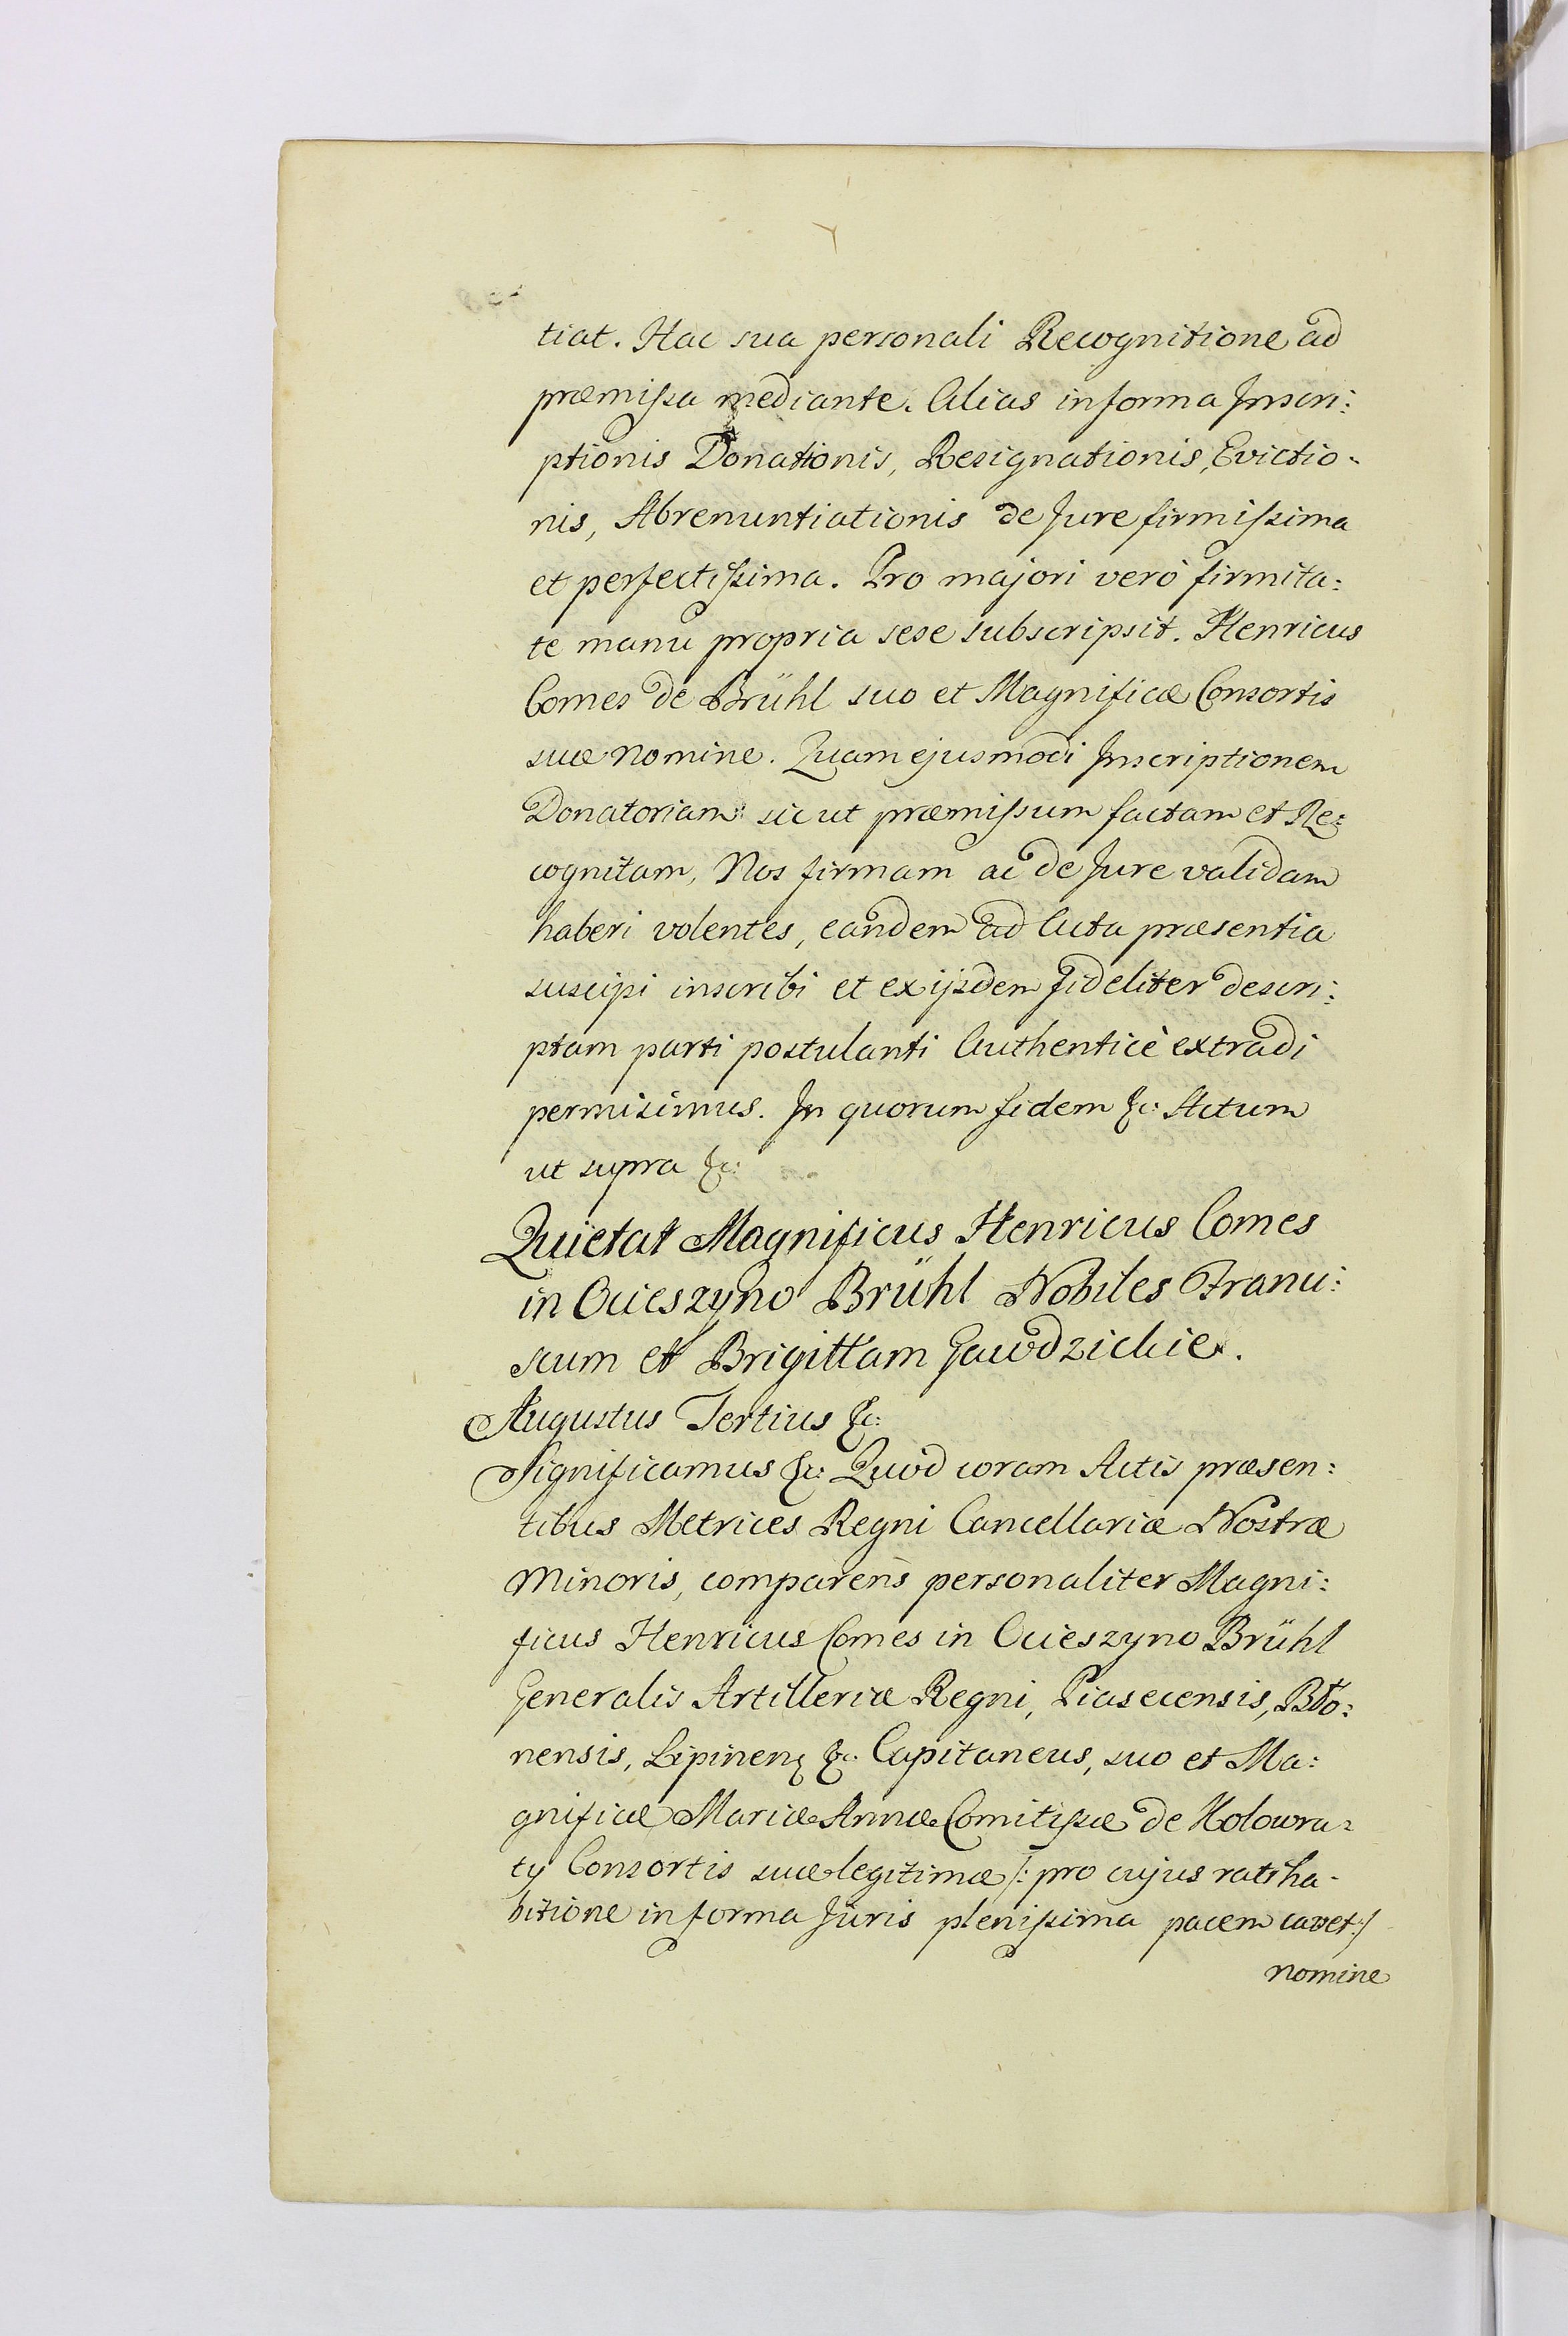 tiat. Hac sua personali Recognitione ad
præmissa mediante. Alias in forma Inscri:
ptionis Donationis, Resignationis, Evictio-
nis, Abrenuntiationis de Jure firmissima
et perfectissima. Pro majori verò firmita:
te manu propria sese subscripsit. Henricus
Comes de Brühl suo et Magnificæ Consortis
suæ nomine. Quam ejusmodi Inscriptionem
Donatoriam sic ut præmissum factam et Re:
cognitam, Nos firmam ac de Jure validam
haberi volentes, eandem ad Acta præsentia
suscipi inscribi et ex ijsdem fideliter descri:
ptam parti postulanti Authenticè extradi
permisimus. In quorum fidem &c: Actum
ut supra &c:
Quietat Magnificus Henricus Comes
in Ocieszyno Brühl Nobiles Franci:
scum et Brigittam Gawdzickie.
Augustus Tertius &c:
Significamus &c: Quòd coram Actis præsen:
tibus Metrices Regni Cancellariæ Nostræ
Minoris, comparens personaliter Magni:
ficus Henricus Comes in Ocieszyno Brühl
Generalis Artilleriæ Regni, Piasecensis, Bło:
nensis, Lipinen &c. Capitaneus, suo et Ma:
gnificæ Mariæ Annæ Comitissæ de Kolowra:
ty Consortis suæ legitimæ /: pro cujus ratiha-
bitione in forma Juris plenissima pacem cavet :/
nomine